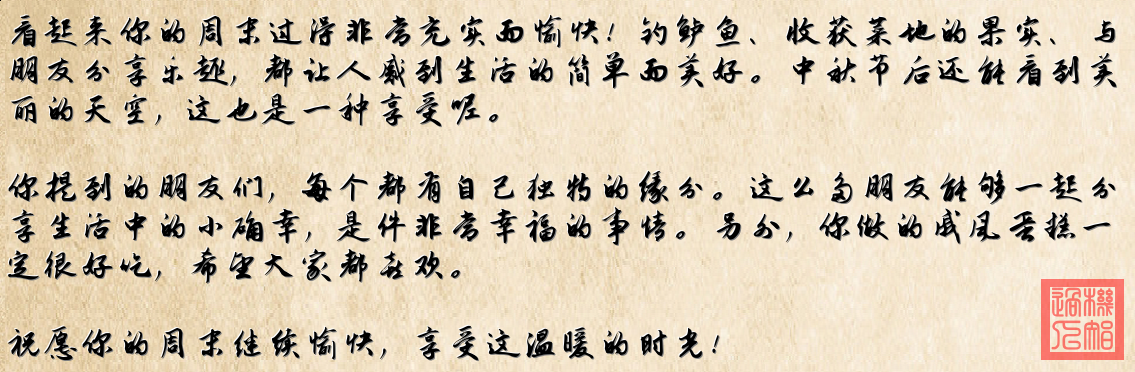 看起来你的周末过得非常充实而愉快！钓鲈鱼、收获菜地的果实、与
朋友分享乐趣，都让人感到生活的简单而美好。中秋节后还能看到美
丽的天空，这也是一种享受呢。
你提到的朋友们，每个都有自己独特的缘分。这么多朋友能够一起分
享生活中的小确幸，是件非常幸福的事情。另外，你做的戚风蛋糕一
定很好吃，希望大家都喜欢。
祝愿你的周末继续愉快，享受这温暖的时光！